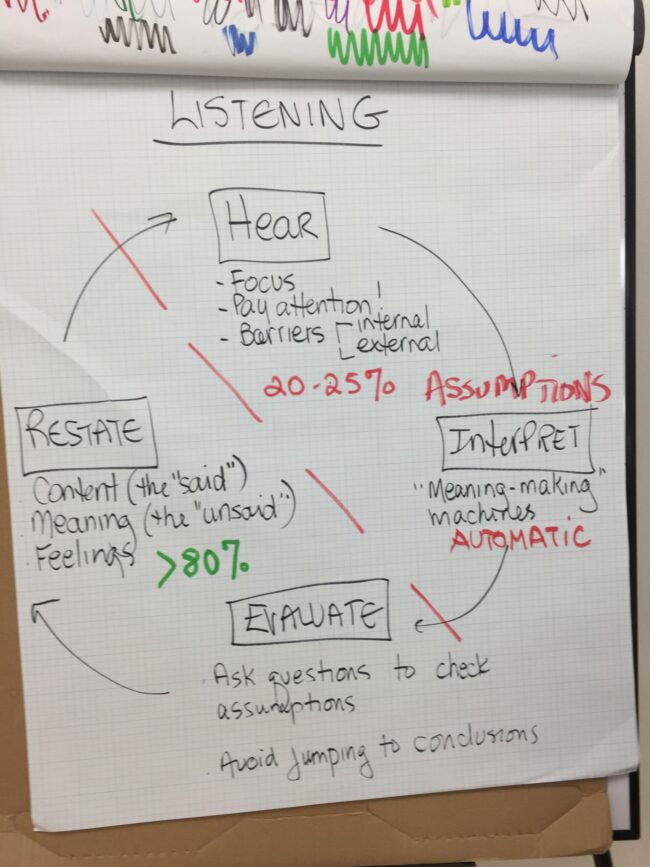 LISTENING
Hear
- Focus
- Pay attention!
- Barriers internal
external
20-25% ASSUMPTIONS
RESTATE
Content (the "said")
Meaning (the "unsaid")
Feelings >80%
InterPRET
"Meaning-making"
machines
AUTOMATIC
EVALUATE
. Ask questions to check
assumptions
. Avoid jumping to conclusions